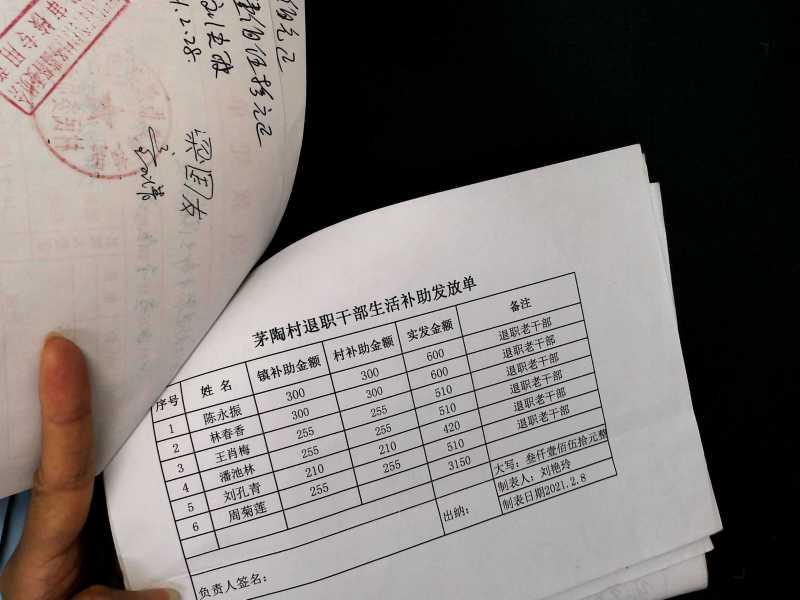 佰伍拾元正
2.28.
梁国友
茅陶村退职干部生活补助发放单
序号 姓 名 镇补助金额 村补助金额 实发金额 备注
1 陈永振 300 300 600 退职老干部
2 林春香 300 300 600 退职老干部
3 王肖梅 255 255 510 退职老干部
4 潘池林 255 255 510 退职老干部
5 刘孔青 210 210 420 退职老干部
6 周菊莲 255 255 510 退职老干部
3150 大写：叁仟壹佰伍拾元整
负责人签名： 出纳： 制表人：刘艳玲
制表日期2021.2.8